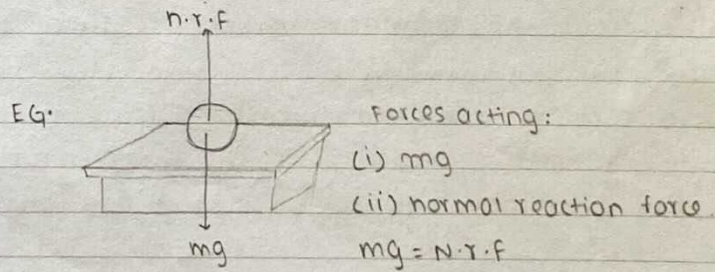 n.r.f
EG.
Forces acting:
(i) mg
(ii) normal reaction force.
mg
mg = N.r.f